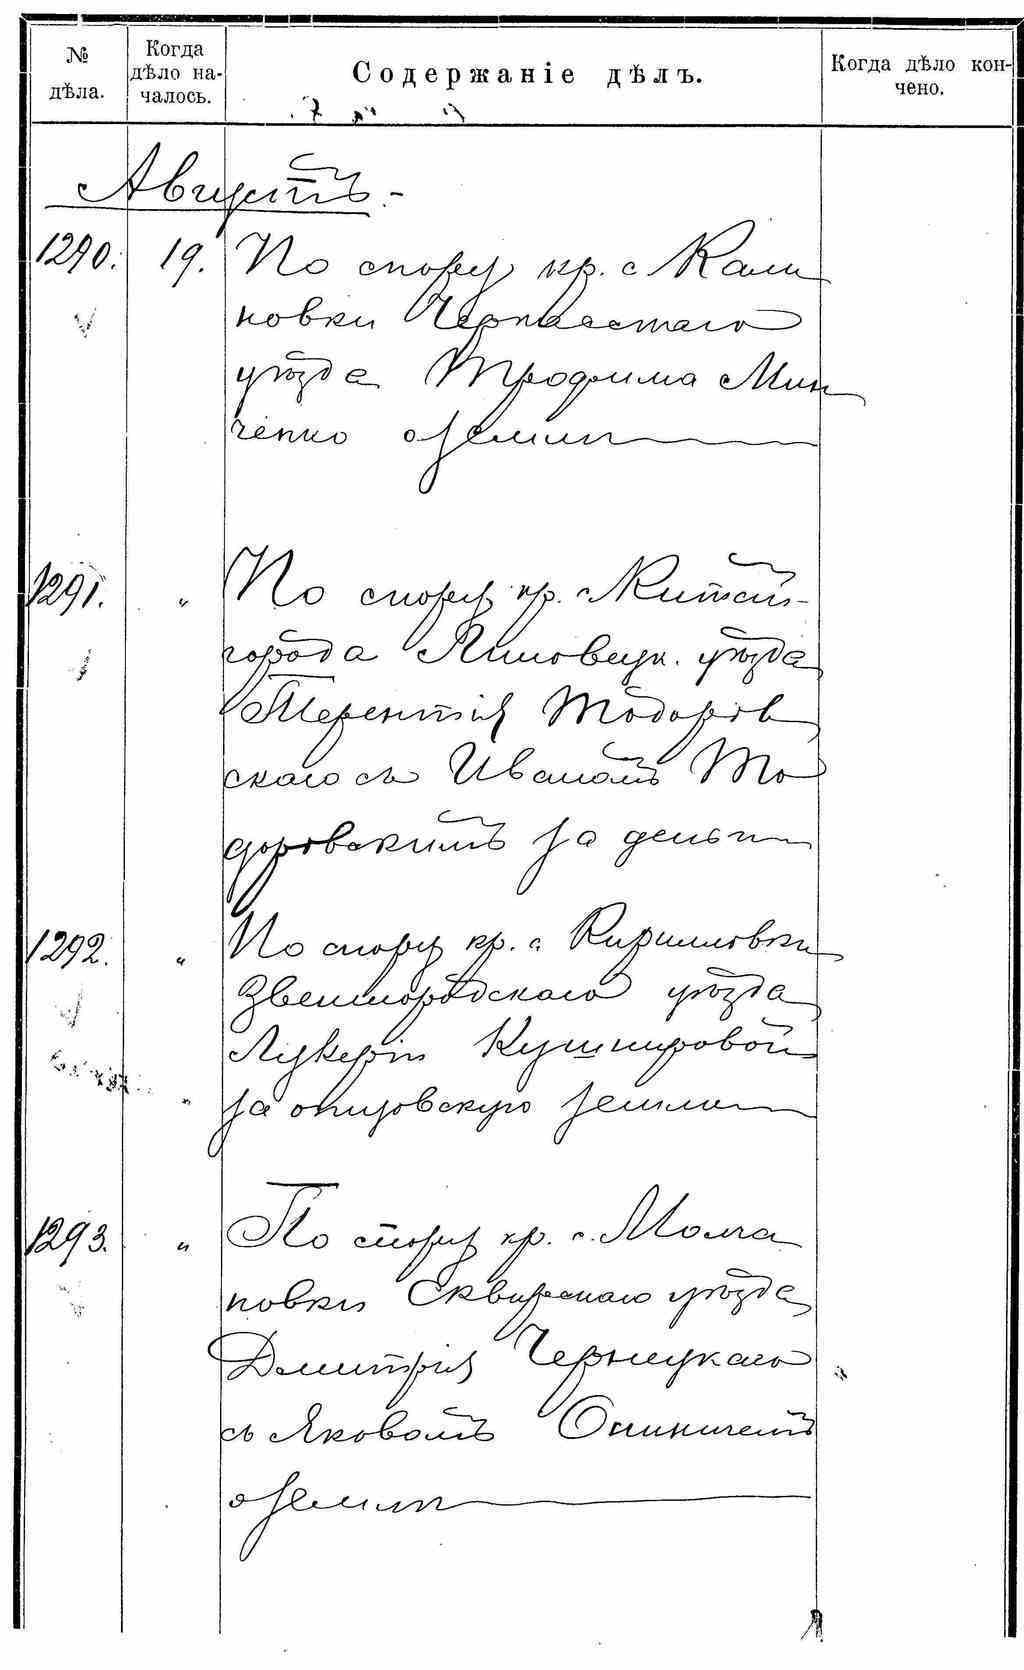 № дѣла.
Когда дѣло на-
чалось.
Содержаніе дѣлъ.
Когда дѣло кон-
чено.
Августъ.-
1290. 19. По спору кр. с Кали
новки Черкасскаго
уѣзда Трофима Мин
ченко о земли
1291. " По спору кр. с Китай-
города Липовецк. уѣзда
Терентія Тодоров
скаго съ Иваномъ То
доровскимъ за деньги
1292. " По спору кр. с Кирилловки
Звенигородскаго уѣзда
Лукеріи Кушнировой
" за опизовскую землю
1293. " По спору кр. с. Молча
новки Сквирскаго уѣзда
Дмитрія Чернецкаго
съ Яковомъ Олиничемъ
о земли